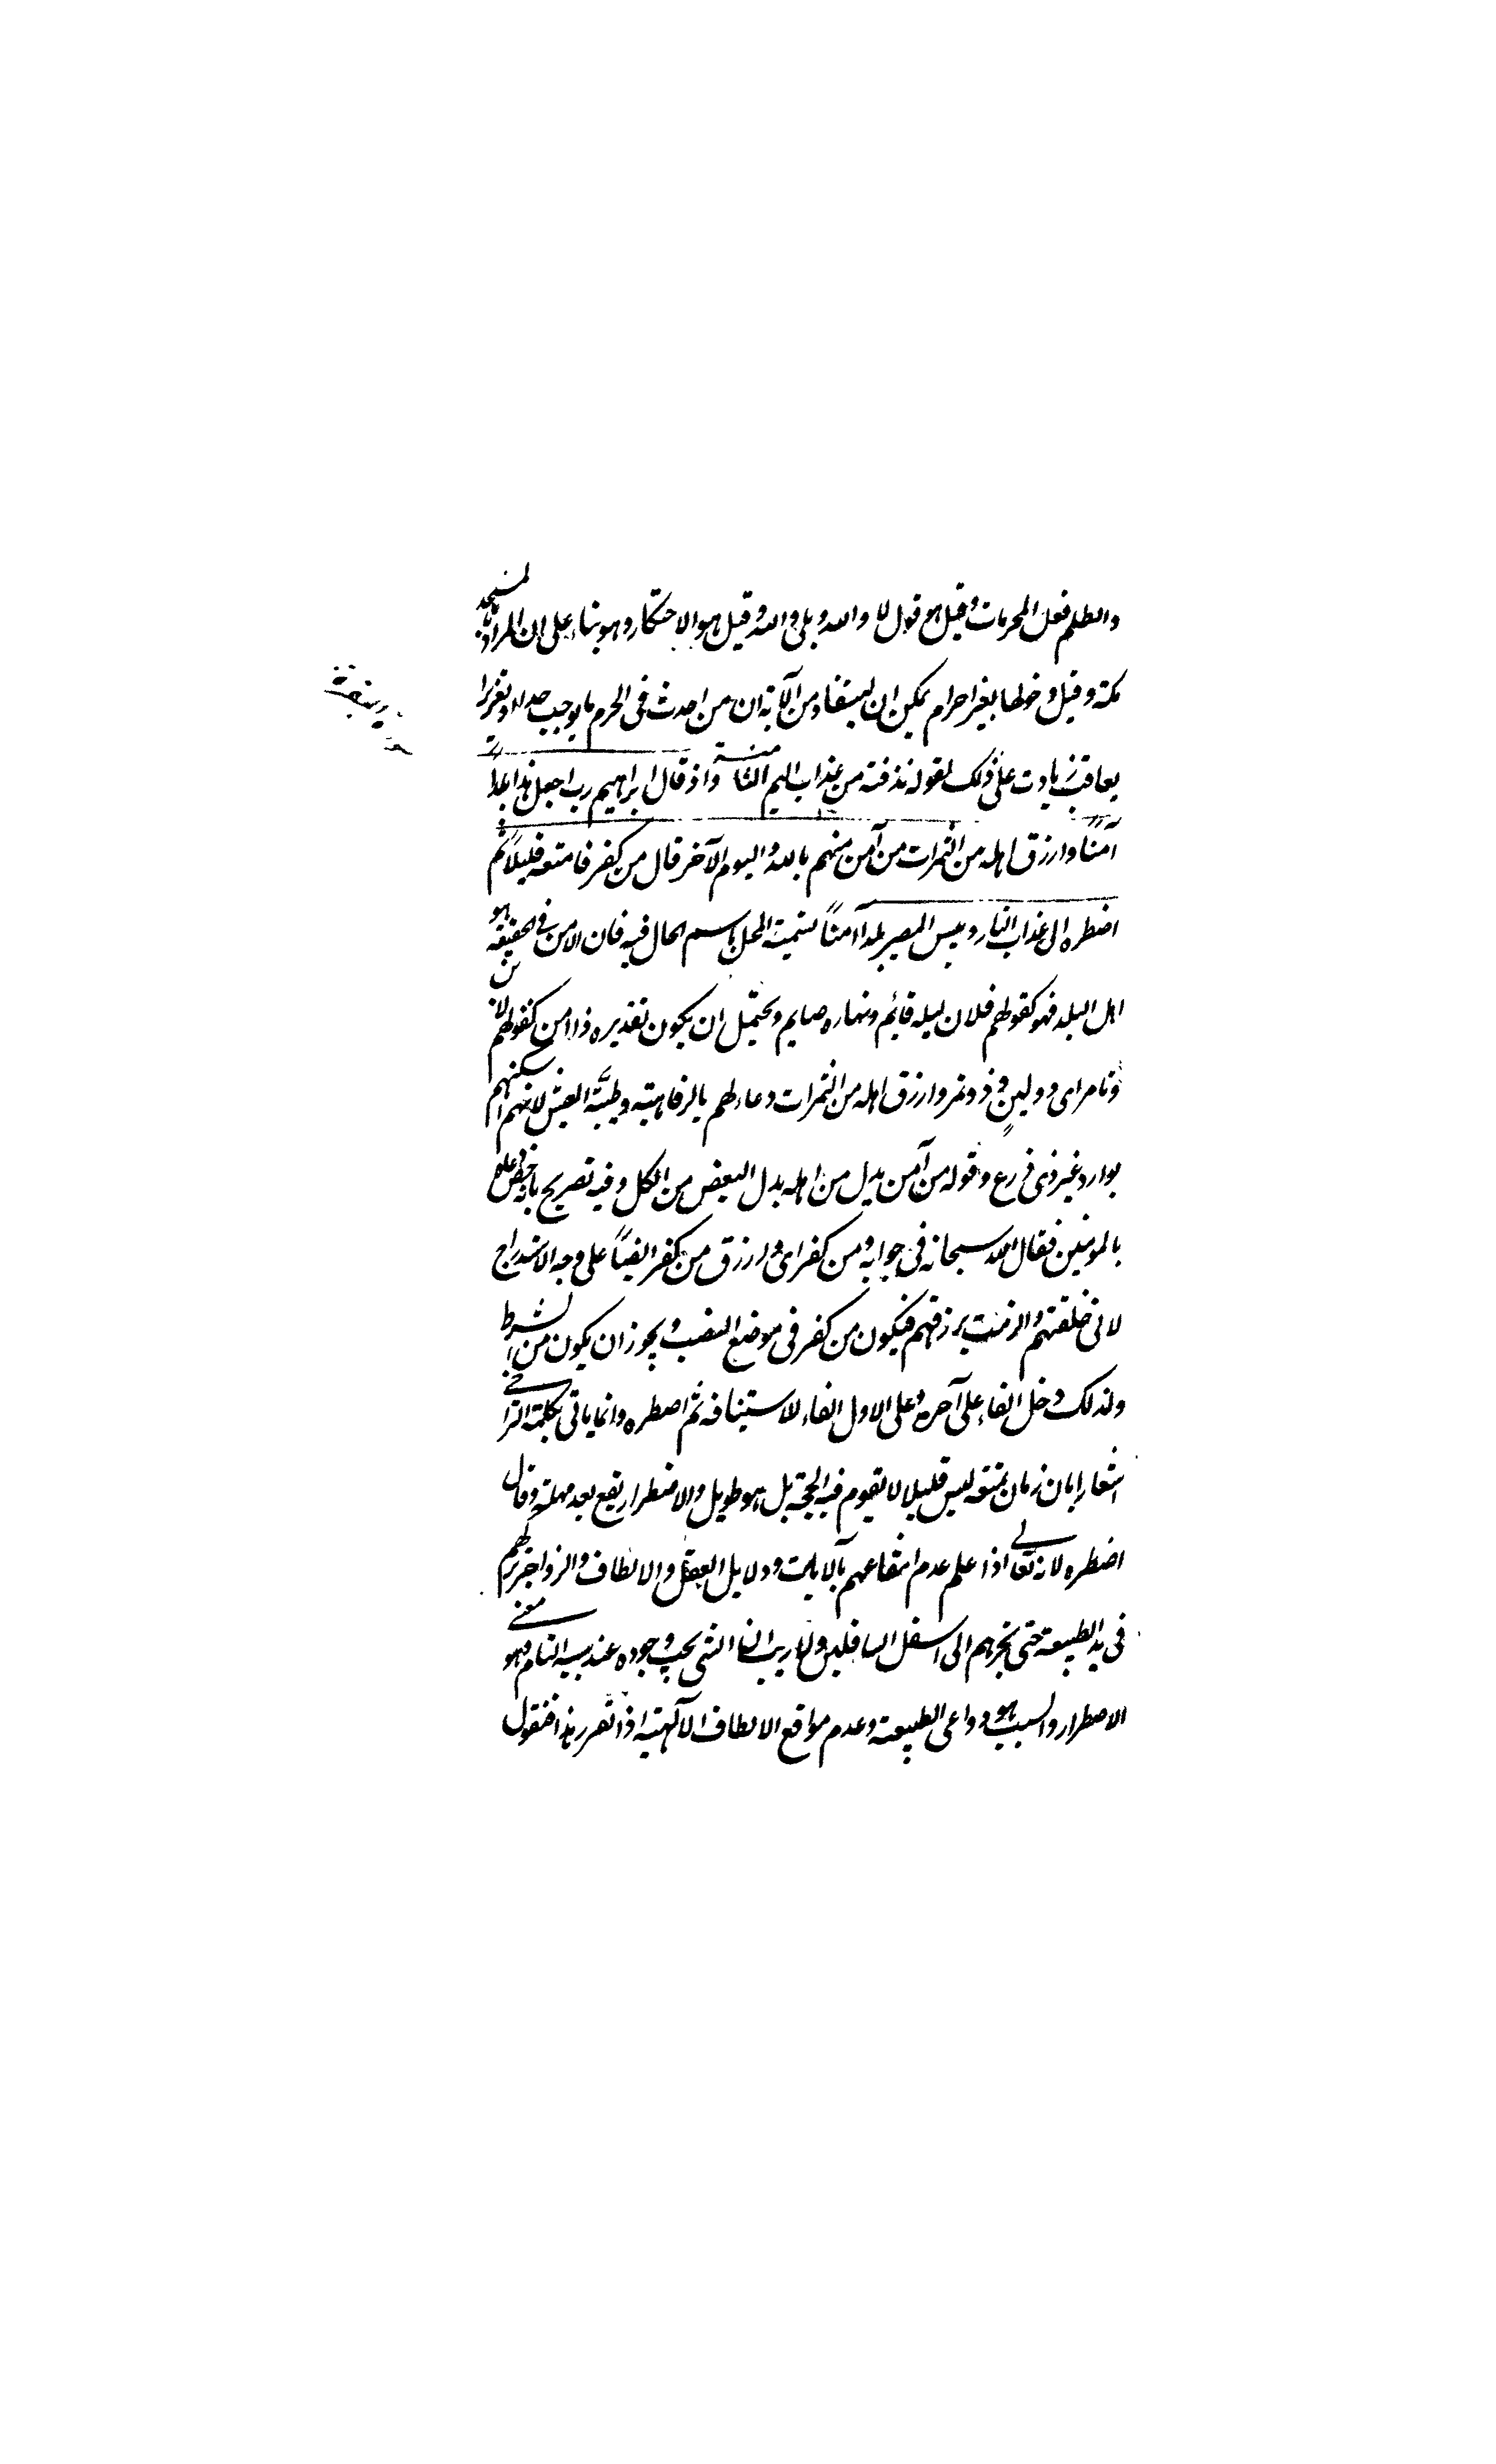 والظلم فعل المحرمات وقيل هو قول لا والله وبلى والله وقيل هو الاحتكار وهو بناء على ان المراد بالمسجد
مكة وقيل دخولها بغير احرام يمكن ان يستفاد من الآية ان من احدث فى الحرم ما يوجب حدا او تعزيرا
يعاقب زيادت على ذلك لقوله نذقه من عذاب اليم الثامنة واذ قال ابراهيم رب اجعل هذا بلداً
آمناً وارزق اهله من الثمرات من آمن منهم بالله واليوم الآخر قال من كفر فامتعه قليلاً ثم
اضطره الى عذاب النار وبيس المصير بلدا آمناً تسمية المحل باسم الحال فيه فان الامن فى الحقيقة هو
اهل البلد فهو كقولهم فلان ليله قايم ونهاره صايم ويحتمل ان يكون تقديره ذا امن كقولهم لابن
وتامر اى ذو لبن وذو تمر وارزق اهله من الثمرات دعاء لهم بالرفاهية وطيبة العيش لانهم اسكنهم
بواد غير ذى زرع وقوله من آمن بدل من اهله بدل البعض من الكل وفيه تصريح بانه خص دعاءه
بالمومنين فقال الله سبحانه فى جوابه ومن كفر اى وارزق من كفر ايضاً على وجه الاستدراج
لانى خلقتهم والزمت برزقهم فيكون من كفر فى موضع النصب ويجوز ان يكون من الشرط
ولذلك دخل الفاء على آخره وعلى الاول الفاء للاستيناف ثم اضطره وانما ياتى بكلمة التراخى
اشعارا بان زمان تمتعه ليس قليلا لا تقوم فيه الحجة بل هو طويل والاضطرار يقع بعد مهلة وقال
اضطره لانه تعالى اذا علم عدم انتفاعهم بالايات ودلايل العقل والالطاف والزواجر تركهم
فى يد الطبيعة حتى تجرهم الى اسفل السافلين ولا ريب ان الشى يجب وجوده عند سببه التام فهو معنى
الاضطرار والسبب هو دواعى الطبيعة وعدم مواقع الالطاف الآلهية اذا تقرر هذا فنقول